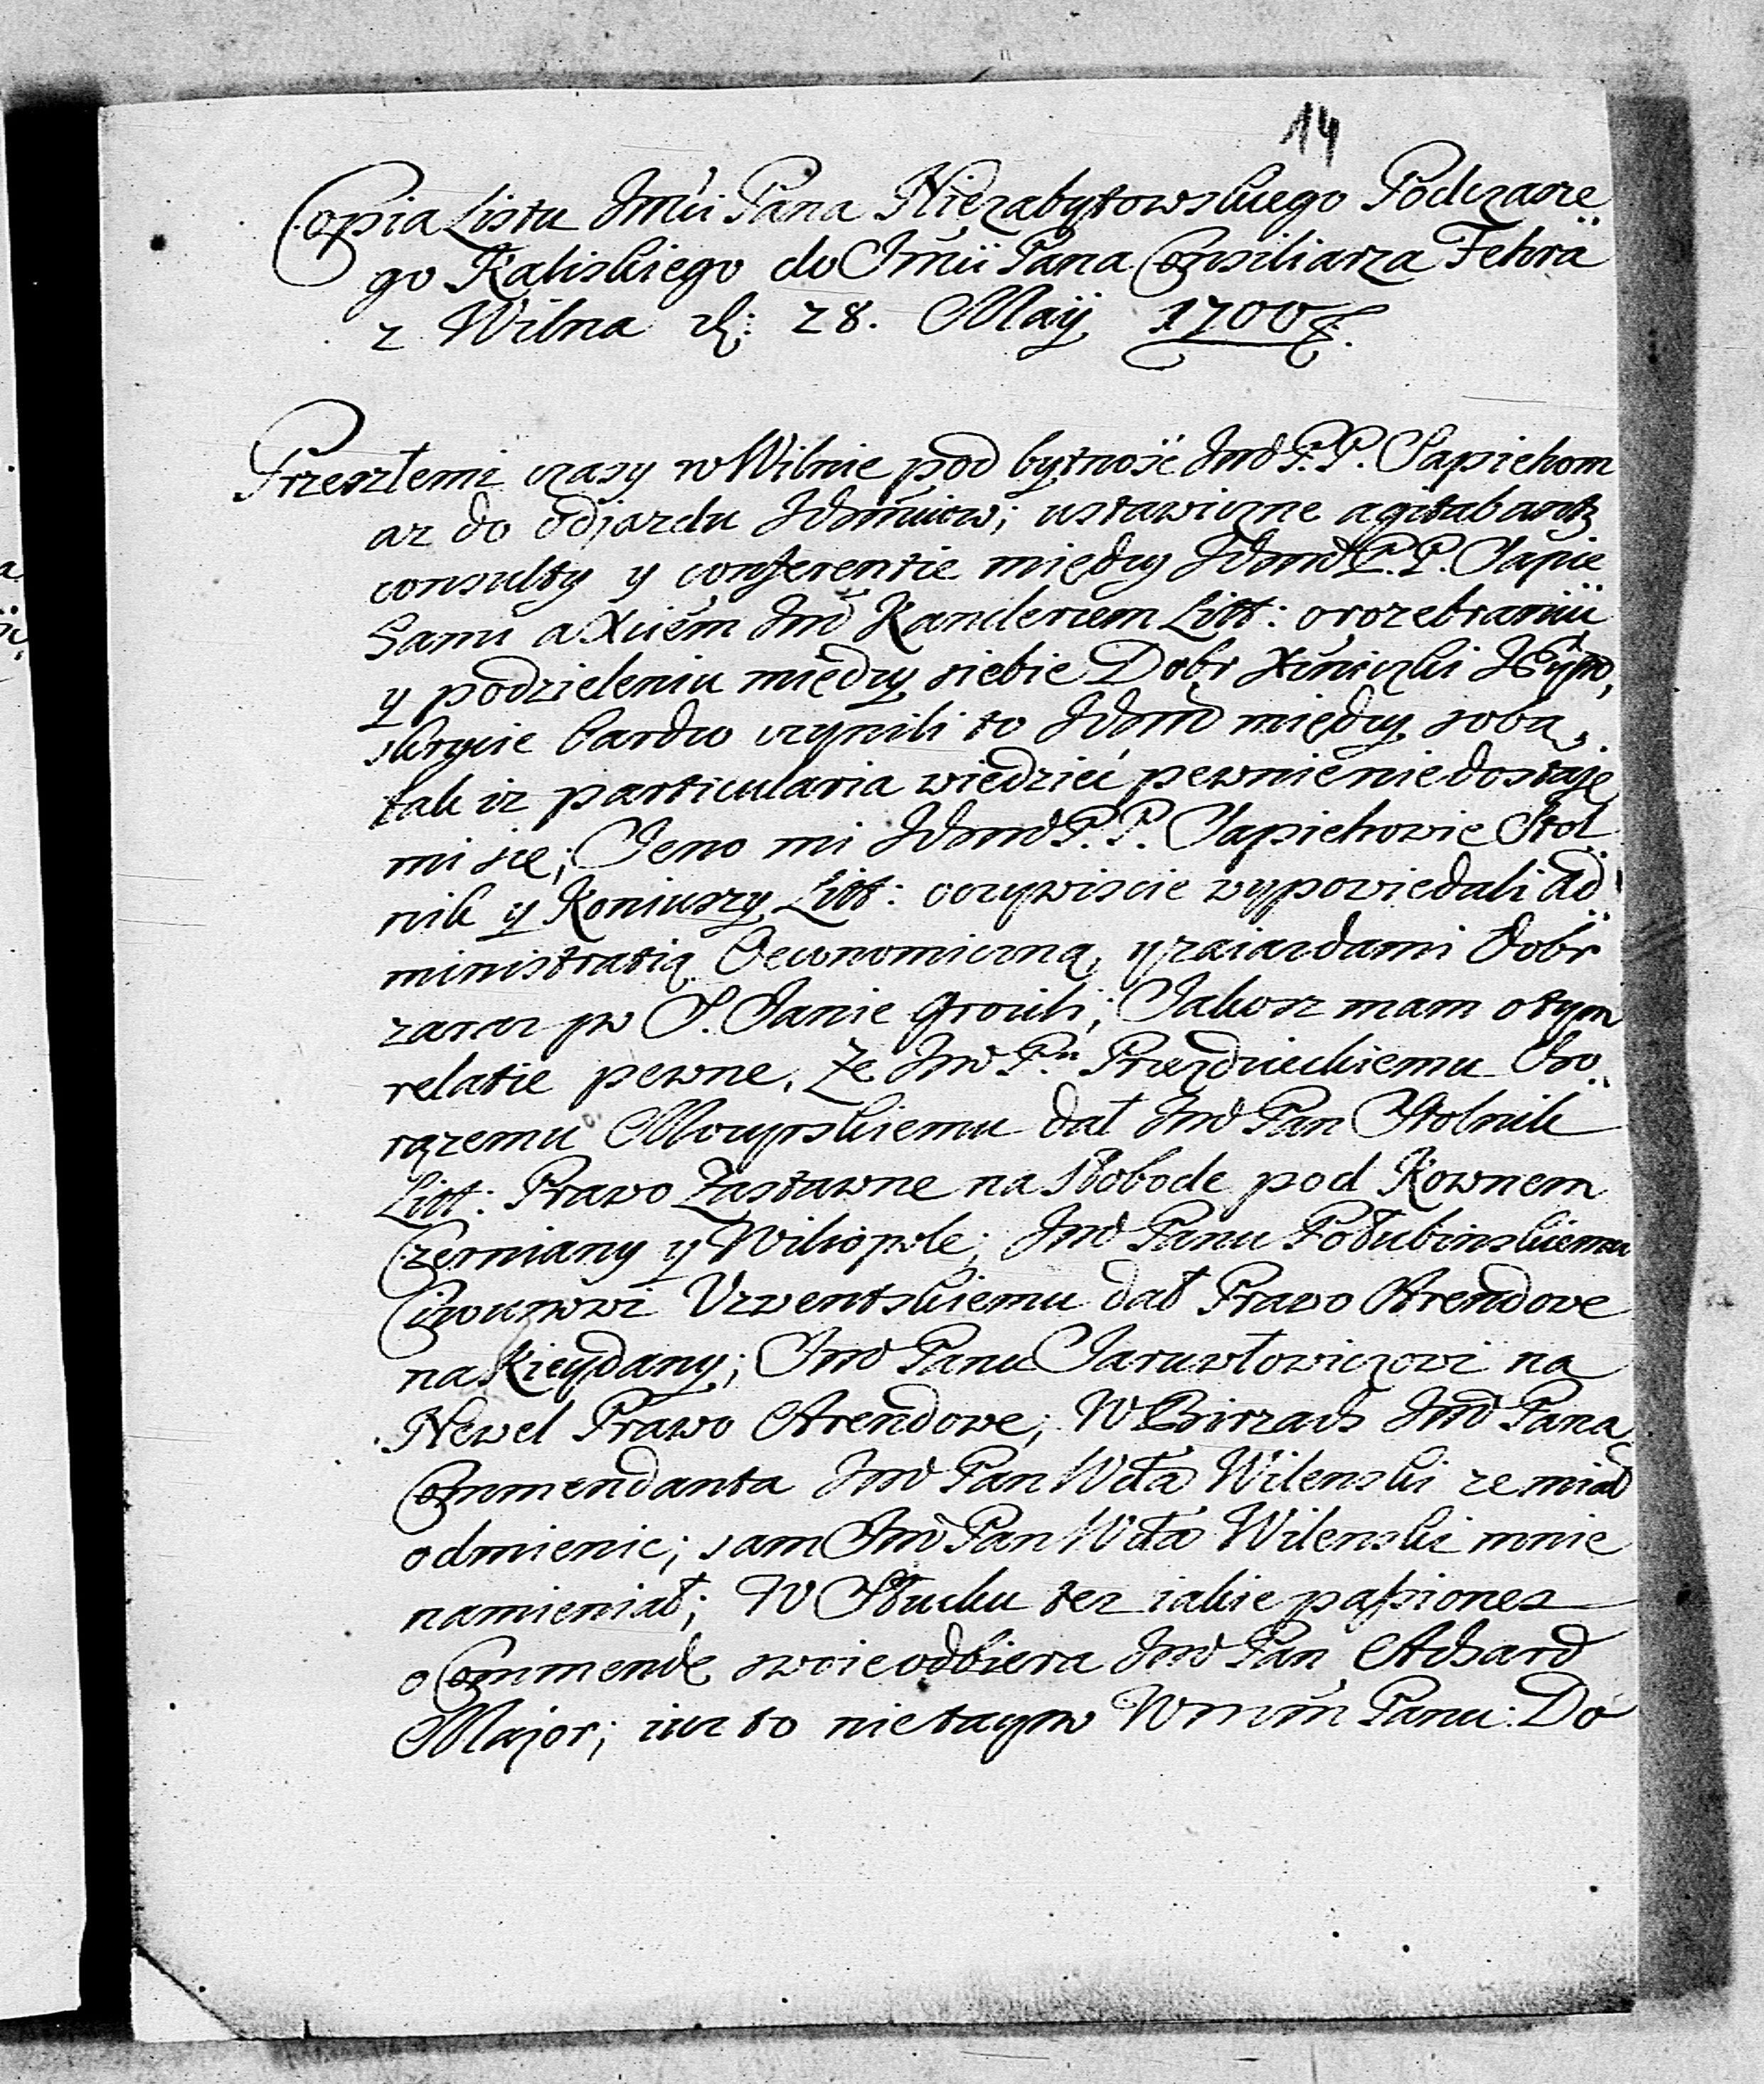 14
Copia Listu Jmći Pana Niezabytowskiego Podczasze
go Kaliskiego do Jmći Pana Consiliarza Fehra
z Wilna d: 28. Maij 1700
Przeszłemi czasy w Wilnie pod bytność Jmć P.P. Sapiehom
az do odjazdu Ichmciow; ustawiczne agitabantur
consulty y conferentie między Ichmć P.P. Sapie
hami a Xciem Jmć Kanclerzem Litt: o rozebraniu
y podzieleniu między siebie Dobr Xiniczki
skrycie bardzo czynili to Ichmć między sobą,
tak iz particularia wiedzieć pewnie nie dostaje
mi się; Jeno mi Ichmć P.P. Sapiehowie Stol
nik y Koniuszy Litt: oczywiscie wypowiedali Ad
ministratią Oeconomiczną, y zaiazdami Dobr
zaraz po S. Janie grozili; Jakosz mam o tym
relatie pewne, Ze Jmć Pn Przezdzieckiemu Cho
rązemu Mozyrskiemu dał Jmć Pan Stolnik
Litt: Prawo Zastawne na Słobode pod Kownem
Czerniany y Wiliopole; Jmć Panu Połubinskiemu
Ciwunowi Uzwentskiemu dał Prawo Arendowe
na Kieydany; Jmć Panu na
Newel Prawo Arendowe; W Birzach Jmć Pana
Commendanta Jmć Pan Wda Wilenski ze miał
odmienic; sam Jmć Pan Wda Wilenski mnie
namieniał; W Słucku tez iakie passiones
o Commendę swoie odbiera Jmć Pan Achard
Major; iuz to nie tayno Wmm Panu: Do